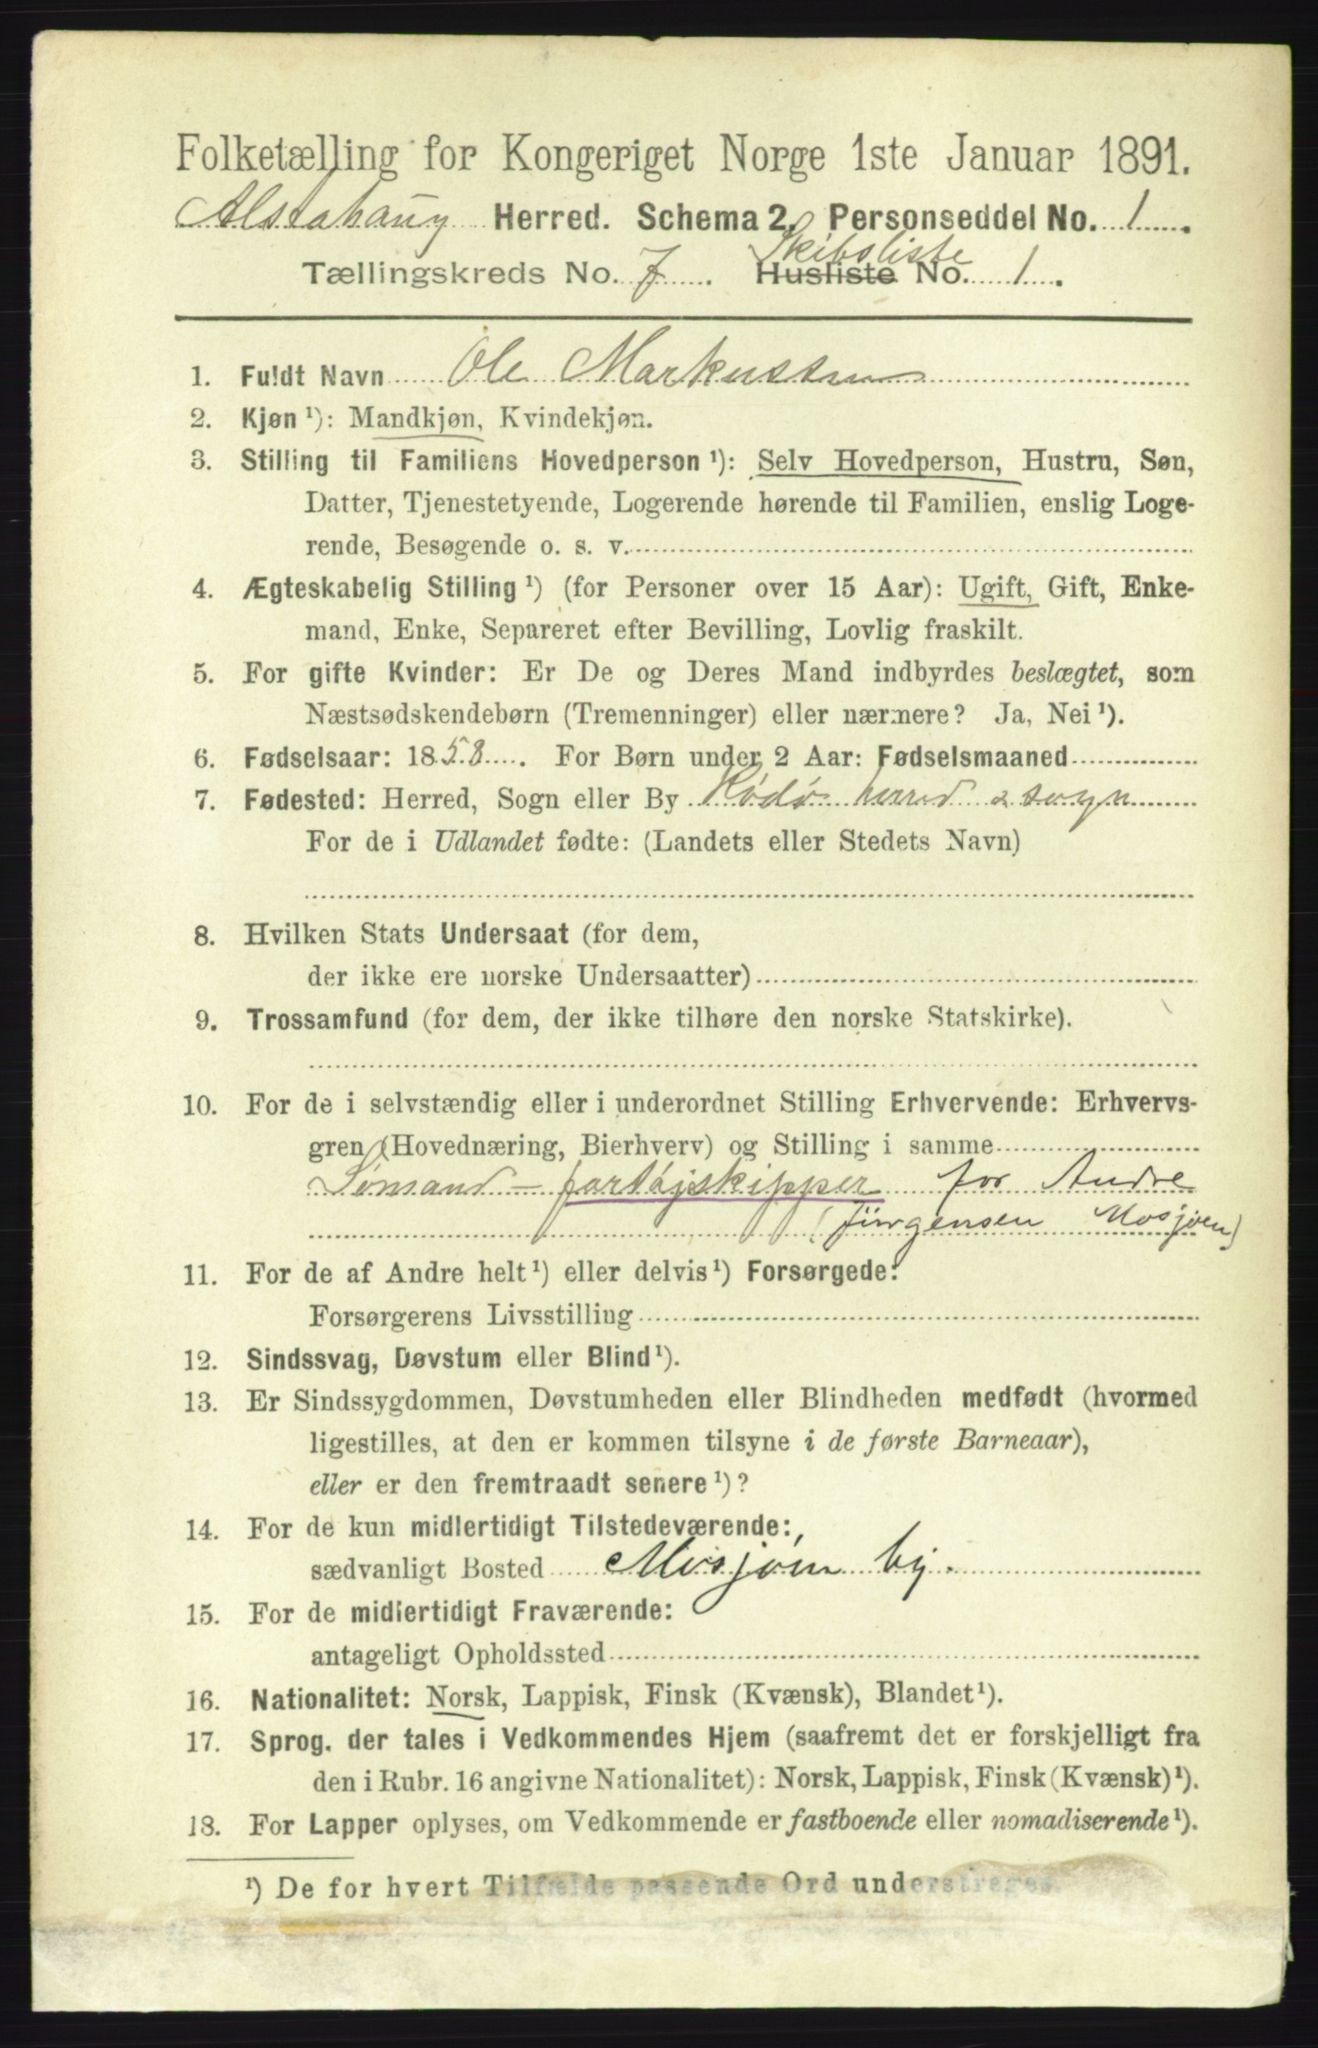 Folketælling for Kongeriget Norge 1ste Januar 1891.
Alstahaug Herred. Schema 2. Personseddel No. 1.
Skibsliste
Tællingskreds No. 7. Husliste No. 1.
1. Fuldt Navn Ole Markussen
2. Kjøn ¹): Mandkjøn, Kvindekjøn.
3. Stilling til Familiens Hovedperson ¹): Selv Hovedperson, Hustru, Søn,
Datter, Tjenestetyende, Logerende hørende til Familien, enslig Loge-
rende, Besøgende o. s. v.
4. Ægteskabelig Stilling ¹) (for Personer over 15 Aar): Ugift, Gift, Enke-
mand, Enke, Separeret efter Bevilling, Lovlig fraskilt.
5. For gifte Kvinder: Er De og Deres Mand indbyrdes beslægtet, som
Næstsødskendebørn (Tremenninger) eller nærmere? Ja, Nei ¹).
6. Fødselsaar: 1858. For Børn under 2 Aar: Fødselsmaaned
7. Fødested: Herred, Sogn eller By Rødø herred & sogn
For de i Udlandet fødte: (Landets eller Stedets Navn)
8. Hvilken Stats Undersaat (for dem,
der ikke ere norske Undersaatter)
9. Trossamfund (for dem, der ikke tilhøre den norske Statskirke).
10. For de i selvstændig eller i underordnet Stilling Erhvervende: Erhvervs-
gren (Hovednæring, Bierhverv) og Stilling i samme
Sømand - fartøjskipper for Andre
(Jürgensen Mosjøen)
11. For de af Andre helt ¹) eller delvis ¹) Forsørgede:
Forsørgerens Livsstilling
12. Sindssvag, Døvstum eller Blind ¹).
13. Er Sindssygdommen, Døvstumheden eller Blindheden medfødt (hvormed
ligestilles, at den er kommen tilsyne i de første Barneaar),
eller er den fremtraadt senere ¹)?
14. For de kun midlertidigt Tilstedeværende:
sædvanligt Bosted Mosjøen by.
15. For de midlertidigt Fraværende:
antageligt Opholdssted
16. Nationalitet: Norsk, Lappisk, Finsk (Kvænsk), Blandet ¹).
17. Sprog, der tales i Vedkommendes Hjem (saafremt det er forskjelligt fra
den i Rubr. 16 angivne Nationalitet): Norsk, Lappisk, Finsk (Kvænsk) ¹).
18. For Lapper oplyses, om Vedkommende er fastboende eller nomadiserende ¹).
¹) De for hvert Tilfælde passende Ord understreges.